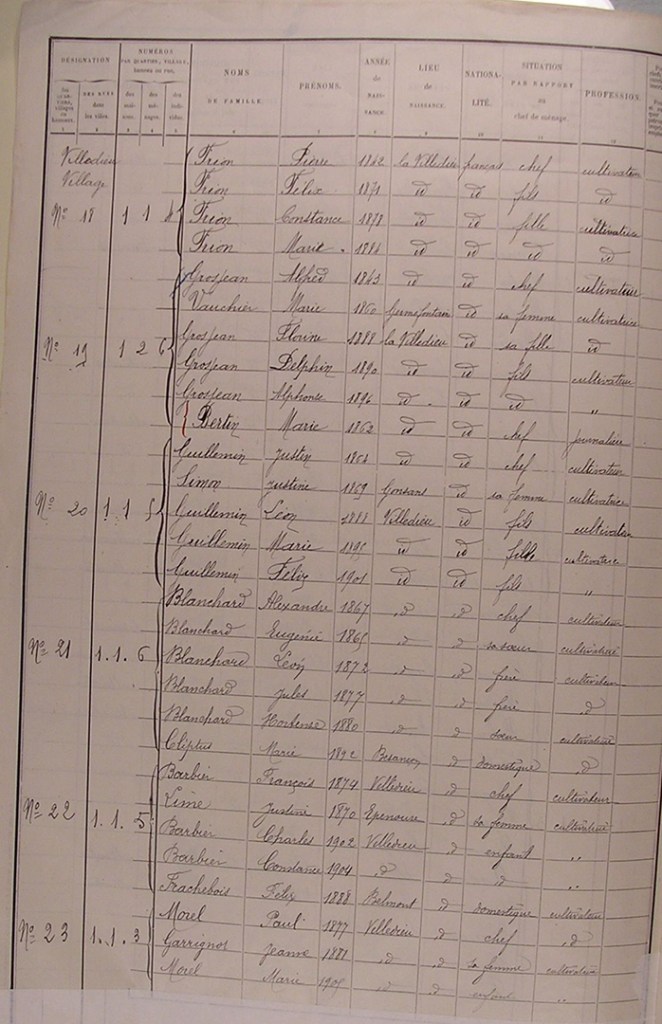 DÉSIGNATION NUMÉROS PAR QUARTIER, VILLAGE, HAMEAU OU RUE, NOMS DE FAMILLE. PRÉNOMS. ANNÉE de NAIS- SANCE. LIEU de NAISSANCE. NATIONA- LITÉ. SITUATION PAR RAPPORT au chef de ménage. PROFESSION.
DES RUES dans les villes. des maisons. des ménages. des individus.
Villedieu Frion Pierre 1842 la Villedieu français chef cultivateur
Village Frion Félix 1871 id id fils id
N° 18 1 1 4 Frion Constance 1878 id id fille cultivatrice
Frion Marie 1884 id id id id
Grosjean Alfred 1843 id id chef cultivateur
Vauchier Marie 1860 Germéfontaine id sa femme cultivatrice
Grosjean Florine 1888 la Villedieu id sa fille id
N° 19 1 2 6 Grosjean Delphin 1890 id id fils cultivateur
Grosjean Alphonse 1896 id id id "
Bertin Marie 1862 id id chef journalière
Guillemin Justin 1864 id id chef cultivateur
Simon Justine 1869 Gonsans id sa femme cultivatrice
N° 20 1 1 5 Guillemin Léon 1888 Villedieu id fils cultivateur
Guillemin Marie 1895 id id fille cultivatrice
Guillemin Félix 1901 id id fils "
Blanchard Alexandre 1867 d d chef cultivateur
Blanchard Eugénie 1865 d d sa sœur cultivatrice
N° 21 1. 1. 6 Blanchard Léon 1872 d d frère cultivateur
Blanchard Jules 1877 d d frère d
Blanchard Hortense 1880 d d sœur cultivatrice
Cliptus Marie 1892 Besançon d domestique d
Barbier François 1874 Villedieu d chef cultivateur
Lime Justine 1870 Epenouse d sa femme cultivatrice
N° 22 1. 1. 5 Barbier Charles 1902 Villedieu d enfant "
Barbier Constance 1904 d d d "
Frachebois Félix 1888 Belmont d domestique cultivateur
Morel Paul 1877 Villedieu d chef d
N° 23 1. 1. 3 Garrignot Jeanne 1881 d d sa femme cultivatrice
Morel Marie 1905 d d enfant "